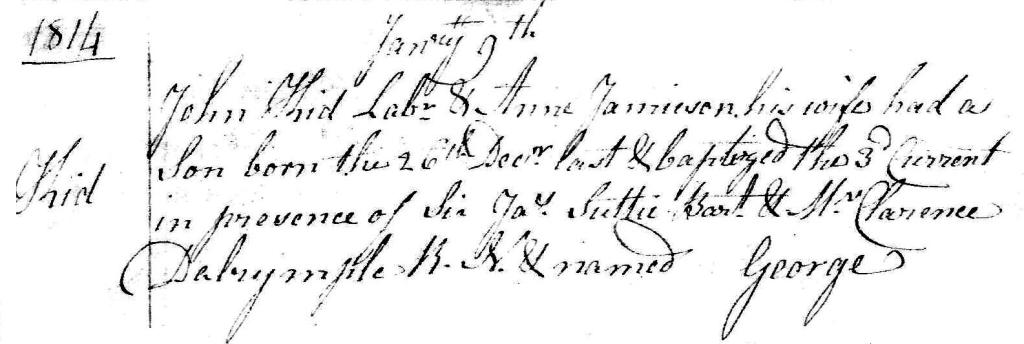 1814
Janry 9th
John Kid Labr. & Anne Jamieson his wife had a
Kid
Son born the 26th Decr last & baptized the 3d Current
in presence of Sir Jas. Suttie Bart. & Mr Clarence
Dalrymple R. N. & named George